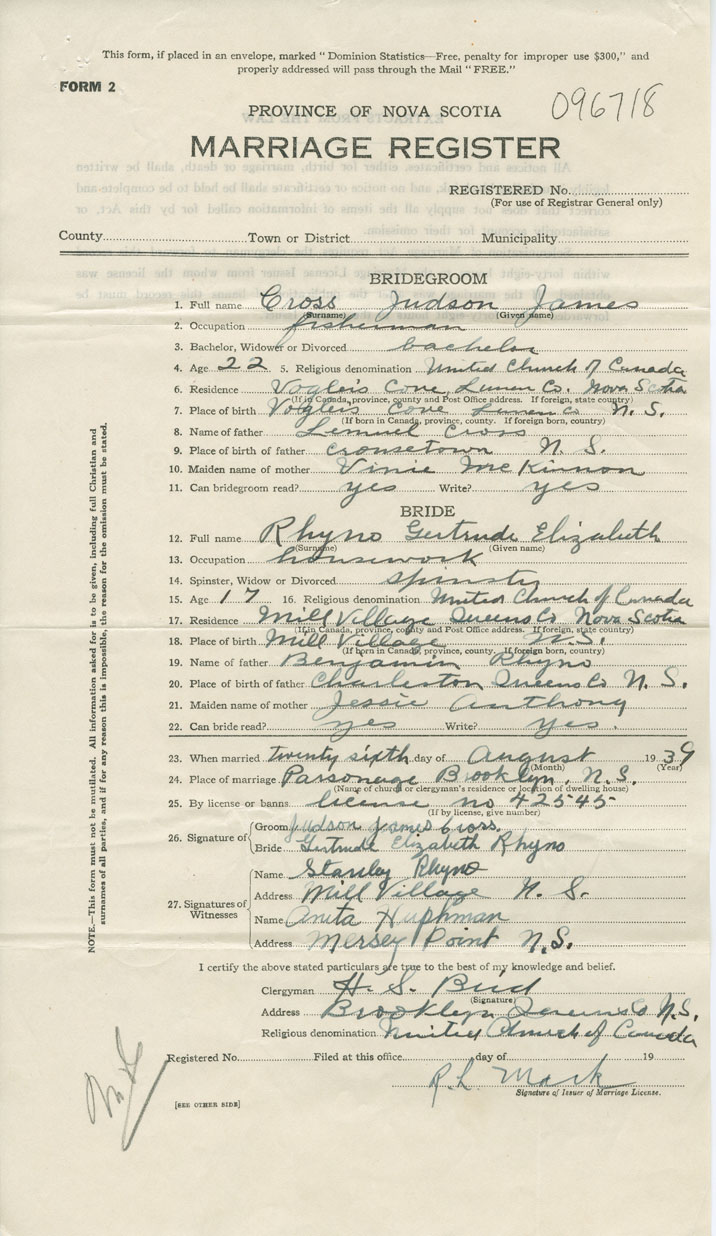 This form, if placed in an envelope, marked "Dominion Statistics—Free, penalty for improper use $300," and
properly addressed will pass through the Mail "FREE."
FORM 2
096718
PROVINCE OF NOVA SCOTIA
MARRIAGE REGISTER
REGISTERED No.
(For use of Registrar General only)
County Town or District Municipality
BRIDEGROOM
1. Full name Cross Judson James
(Surname) (Given name)
2. Occupation fisherman
3. Bachelor, Widower or Divorced bachelor
4. Age 22 5. Religious denomination United Church of Canada
6. Residence Vogler's Cove Lunen Co. Nova Scotia
(If in Canada, province, county and Post Office address. If foreign, state country)
7. Place of birth Vogler's Cove Lunen Co N. S.
(If born in Canada, province, county. If foreign born, country)
8. Name of father Lemuel Cross
9. Place of birth of father Crousetown N. S.
10. Maiden name of mother Vinie McKinnon
11. Can bridegroom read? yes Write? yes
BRIDE
12. Full name Rhyno Gertrude Elizabeth
(Surname) (Given name)
13. Occupation housework
14. Spinster, Widow or Divorced spinster
15. Age 17 16. Religious denomination United Church of Canada
17. Residence Mill Village Queens Co Nova Scotia
(If in Canada, province, county and Post Office address. If foreign, state country)
18. Place of birth Mill Village N. S.
(If born in Canada, province, county. If foreign born, country)
19. Name of father Benjamin Rhyno
20. Place of birth of father Charleston Queens Co N. S.
21. Maiden name of mother Jessie Anthony
22. Can bride read? yes Write? yes.
23. When married twenty sixth day of August 1939
(Month) (Year)
24. Place of marriage Parsonage Brooklyn, N.S.
(Name of church or clergyman's residence or location of dwelling house)
25. By license or banns license no 42545
(If by license, give number)
26. Signature of
Groom Judson James Cross.
Bride Gertrude Elizabeth Rhyno
27. Signatures of Witnesses
Name Stanley Rhyno
Address Mill Village N. S.
Name Anita Huphman
Address Mersey Point N.S.
I certify the above stated particulars are true to the best of my knowledge and belief.
Clergyman H. S.
(Signature)
Address Brooklyn Queens Co N.S.
Religious denomination United Church of Canada
Registered No. Filed at this office day of 19
R. L. Mack
Signature of Issuer of Marriage License.
[SEE OTHER SIDE]
NOTE.—This form must not be mutilated. All information asked for is to be given, including full Christian and
surnames of all parties, and if for any reason this is impossible, the reason for the omission must be stated.